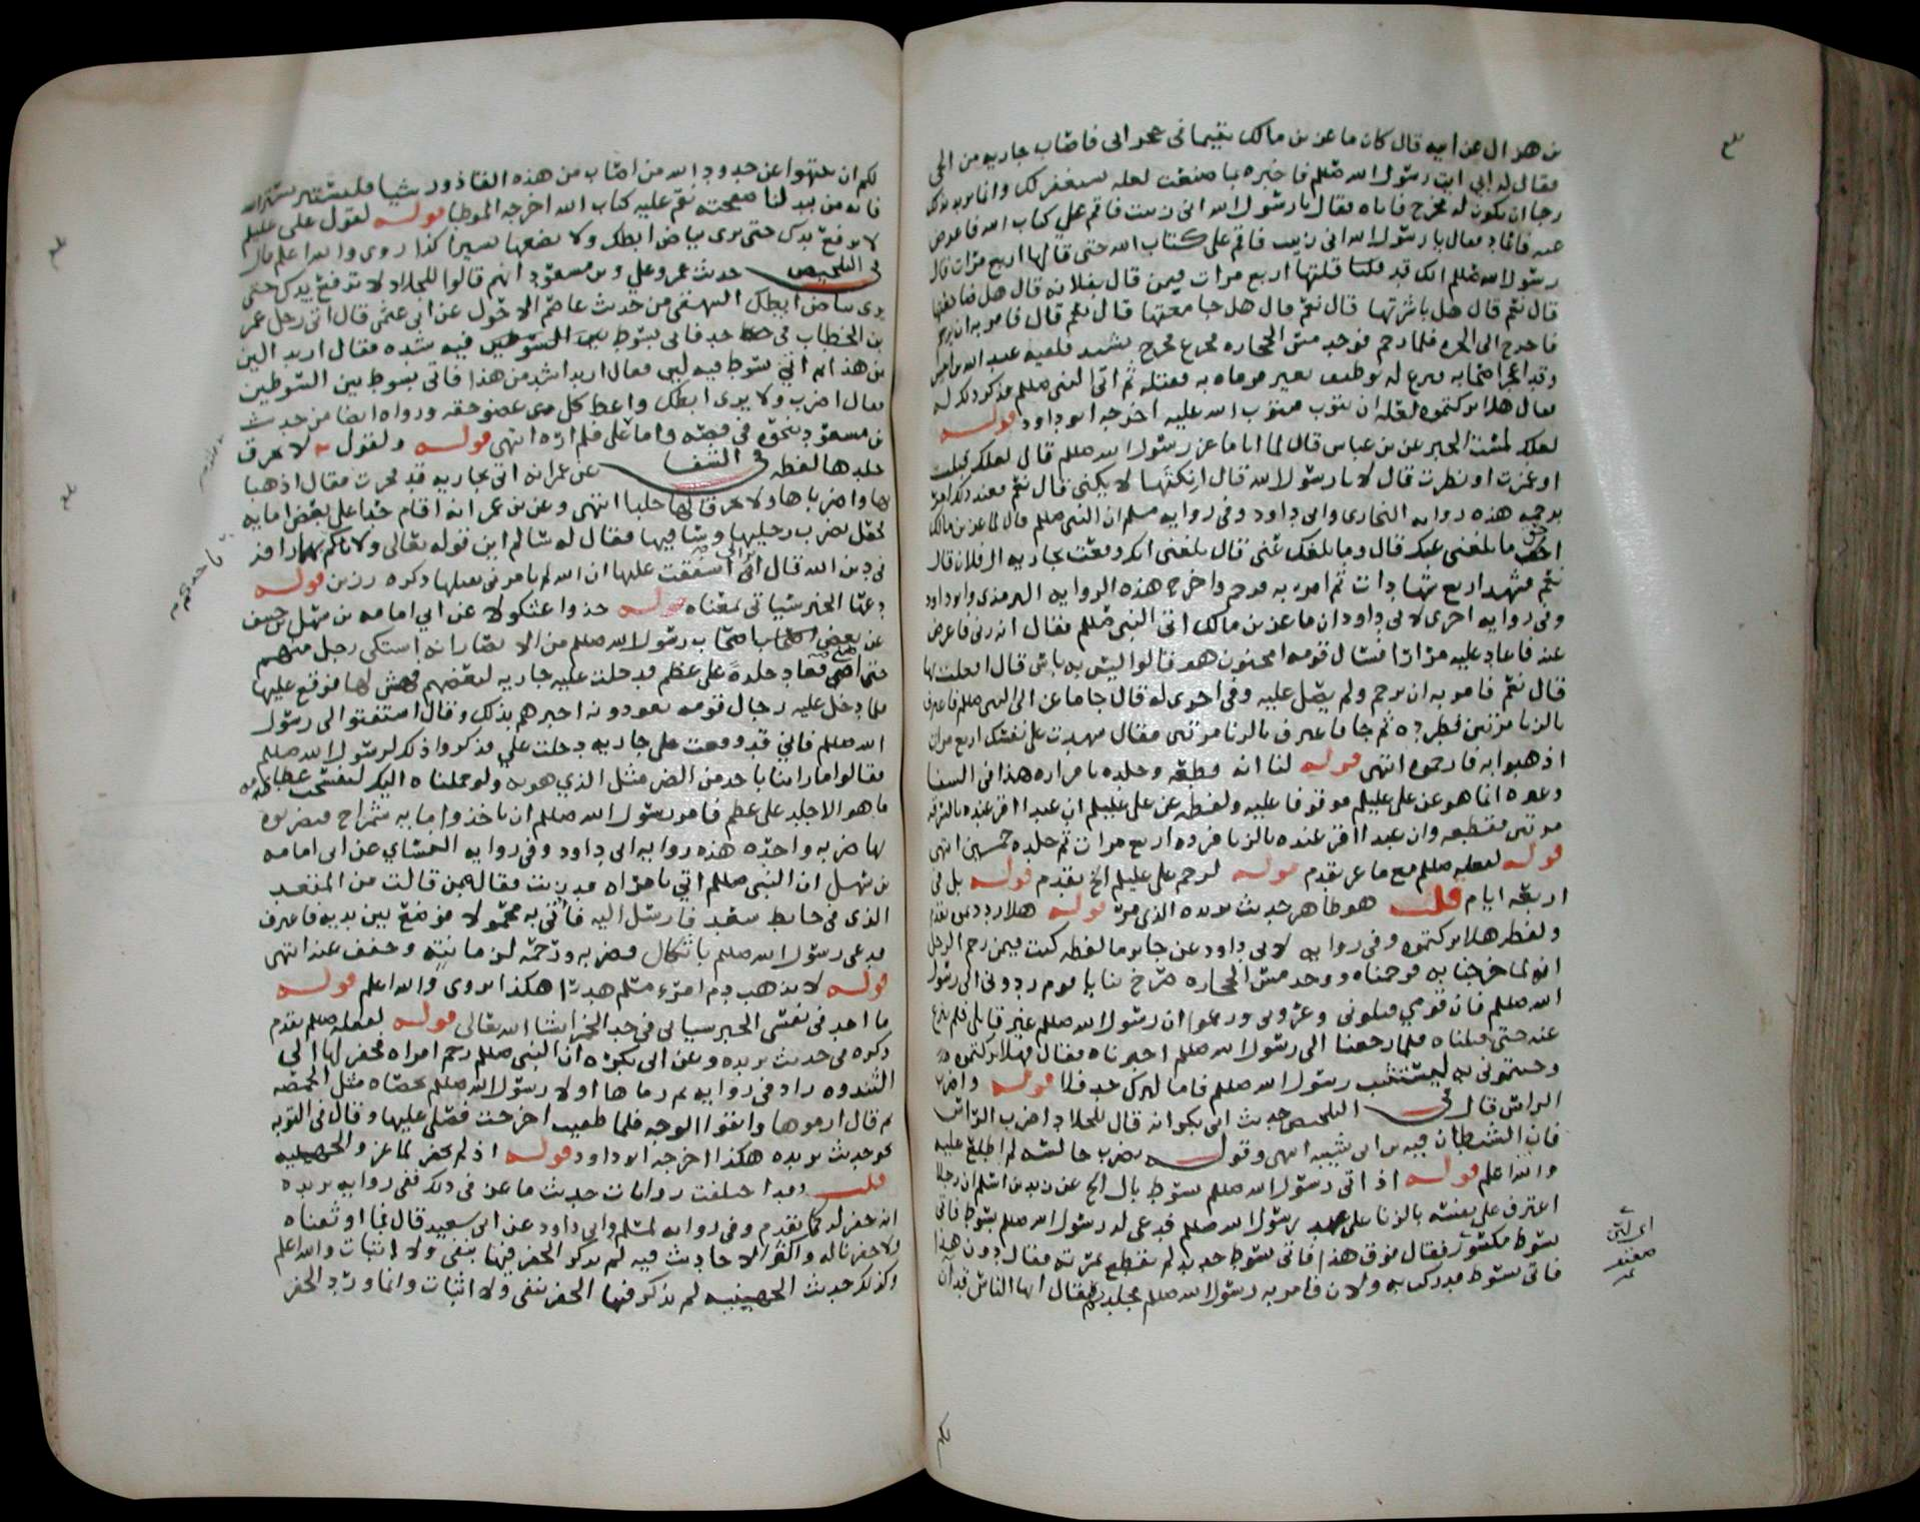 بن هزال عن ابيه قال كان ماعز بن مالك يتيما في حجر ابي فاصاب جاريه من الحي
فقال له ابي ايت رسول الله صللم فاخبره بما صنعت لعله يستغفر لك وانما يريد بذلك
رجا ان يكون له مخرج فاتاه فقال يا رسول الله اني زنيت فاقم علي كتاب الله فاعرض
عنه فعاد فقال يا رسول الله اني زنيت فاقم علي كتاب الله حتى قالها اربع مرات قال
رسول الله صللم انك قد قلتها اربع مرات فبمن قال بفلانه قال هل ضاجعتها
قال نعم قال هل باشرتها قال نعم قال هل جامعتها قال نعم قال فامر به ان يرجم
فاخرج الى الحره فلما رجم فوجد مس الحجاره فخرج يشتد فلقيه عبد الله بن انيس
وقد اعجز اصحابه فنزع له بوظيف بعير فرماه به فقتله ثم اتى النبي صللم فذكر ذلك له
فقال هلا تركتموه لعله ان يتوب فيتوب الله عليه اخرجه ابو داود قوله
لعلك لمست الخبر عن بن عباس قال لما اتا ماعز رسول الله صللم قال لعلك قبلت
او غمزت او نظرت قال لا يا رسول الله قال انكتها لا يكني قال نعم فعند ذلك امر
برجمه هذه روايه البخاري وابي داود وفي روايه مسلم ان النبي صللم قال لماعز بن مالك
احق ما بلغني عنك قال وما بلغك عني قال بلغني انك وقعت بجاريه ال فلان قال
نعم فشهد اربع شهادات ثم امر به فرجم واخرج هذه الروايه الترمذي وابو داود
وفي روايه اخرى لابي داود ان ماعز بن مالك اتى النبي صللم فقال انه زنى فاعرض
عنه فاعاد عليه مرارا فسال قومه امجنون هو قالوا ليس به باس قال افعلت بها
قال نعم فامر به ان يرجم ولم يصل عليه وفي اخرى له قال جا ماعز الى النبي صللم فاعترف
بالزنا مرتين فطرده ثم جا فاعترف بالزنا مرتين فقال شهدت على نفسك اربع مرات
اذهبوا به فارجموه انتهى قوله لنا انه قطعه وجلده باقراره هذا في السنا
وغيره انما هو عن علي عليلم موقوفا عليه ولفظه عن علي عليلم ان عبدا اقر عنده بالسرقه
مرتين فقطعه وان عبدا اقر عنده بالزنا فرده اربع مرات ثم جلده خمسين انتهى
قوله لفعله صللم مع ماعز تقدم قوله لرجم علي عليلم الخ تقدم قوله بل في
اربعه ايام قلت هو ظاهر حديث بريده الذي مر قوله هلا رددتموه تقدم
ولفظه هلا تركتموه وفي روايه لابي داود عن جابر ما لفظه كنت فيمن رجم الرجل
انه لما خرجنا به فرجمناه ووجد مس الحجاره صرخ بنا يا قوم ردوني الى رسول
الله صللم فان قومي قتلوني وغروني وزعموا ان رسول الله صللم غير قاتلي فلم ننزع
عنه حتى قتلناه فلما رجعنا الى رسول الله صللم اخبرناه فقال فهلا تركتموه
وجيتموني به ليستثبت رسول الله صللم فاما لترك حد فلا قوله واضرب
الراس قال في التلخيص حديث ابي بكر انه قال للجلاد اضرب الراس
فان الشيطان فيه بن ابي شيبه انتهى وقوله يضرب جالسه لم اطلع عليه
والله اعلم قوله اذ اتى رسول الله صللم بسوط بال الخ عن زيد بن اسلم ان رجلا
اعترف على نفسه بالزنا على عهد رسول الله صللم فدعى له رسول الله صللم بسوط فاتي
بسوط مكسور فقال فوق هذا فاتي بسوط جديد لم تقطع ثمرته فقال دون هذا
فاتي بسوط قد ركب به ولان فامر به رسول الله صللم فجلد ثم قال ايها الناس قد آن
لكم ان تنتهوا عن حدود الله من اصاب من هذه القاذورات شيا فليستتر بستر الله
فانه من يبد لنا صفحته نقم عليه كتاب الله اخرجه الموطا قوله لقول علي عليلم
لا ترفع يدك حتى يرى بياض ابطك ولا تضعها يسيرا كذا روى والله اعلم قال
في التلخيص حديث عمر وعلي وبن مسعود انهم قالوا للجلاد لا ترفع يدك حتى
يرى بياض ابطك البيهقي من حديث عاصم الاحول عن ابي عثمن قال اتي رجل عمر
بن الخطاب في حد فاتى بسوط فيه شده فقال اريد الين
من هذا ثم اتي بسوط فيه لين فقال اريد اشد من هذا فاتي بسوط بين السوطين
فقال اضرب ولا يرى ابطك واعط كل عضو حقه ورواه ايضا من حديث
بن مسعود نحوه في قصه واما علي فلم اره انتهى قوله ولقول لا تحرق
جلدها لفظه في الشفا عن عمر انه اتي بجاريه قد فجرت فقال اذهبا
بها واضرباها ولا تحرقا لها جلبا انتهى وعن بن عمر انه اقام حدا على بعض امايه
فجعل يضرب رجليها وساقيها فقال له سالم اين قوله تعالى ولا تاخذكم بهما رافه
في دين الله قال اتراني اشفقت عليها ان الله لم يامرني بقتلها ذكره رزين قوله
دعها الخبر سياتي بمعناه قوله خذوا عثكولا عن ابي امامه بن سهل بن حنيف
عن بعض اصحاب رسول الله صللم من الانصار انه اشتكى رجل منهم
حتى اضنى فعاد جلده على عظم فدخلت عليه جاريه لبعضهم فهش لها فوقع عليها
فلما دخل عليه رجال قومه يعودونه اخبرهم بذلك وقال استفتوا لي رسول
الله صللم فاني قد وقعت على جاريه دخلت علي فذكروا ذلك لرسول الله صللم
فقالوا ما راينا باحد من الضر مثل الذي هو به ولو حملناه اليك لتفسخت عظامه
ما هو الا جلد على عظم فامر رسول الله صللم ان ياخذوا مايه شمراخ فيضربوه
بها ضربه واحده هذه روايه ابي داود وفي روايه النساي عن ابي امامه
بن سهل ان النبي صللم اتي بامراه قد زنت فقال ممن قالت من المقعد
الذي في حايط سعد فارسل اليه فاتي به محمولا فوضع بين يديه فاعترف
فدعى رسول الله صللم باثكال فضربه ورحمه لزمانته وخفف عنه انتهى
قوله لا يذهب دم امرء مسلم هدرا هكذا يروى والله اعلم قوله
ما اجد في نفسي الخبر سياتي في حد الخمر انشا الله تعالى قوله لفعله صللم تقدم
ذكره في حديث بريده وعن ابي بكره ان النبي صللم رجم امراه فحفر لها الى
الثندوه زاد في روايه ثم رماها اولا رسول الله صللم بحصاه مثل الحمصه
ثم قال ارموها واتقوا الوجه فلما طفيت اخرجت فصلى عليها وقال في التوبه
نحو حديث بريده هكذا اخرجه ابو داود قوله اذ لم يحفر لماعز والجهينيه
قلت وقد اختلفت روايات حديث ماعز في ذلك ففي روايه بريده
انه حفر له كما تقدم وفي روايه لمسلم وابي داود عن ابي سعيد قال فما اوثقناه
ولا حفرنا له واكثر الاحاديث فيه لم يذكر الحفر فيها بنفي ولا اثبات والله اعلم
وكذلك حديث الجهينيه لم يذكر فيها الحفر بنفي ولا اثبات وانما ورد الحفر